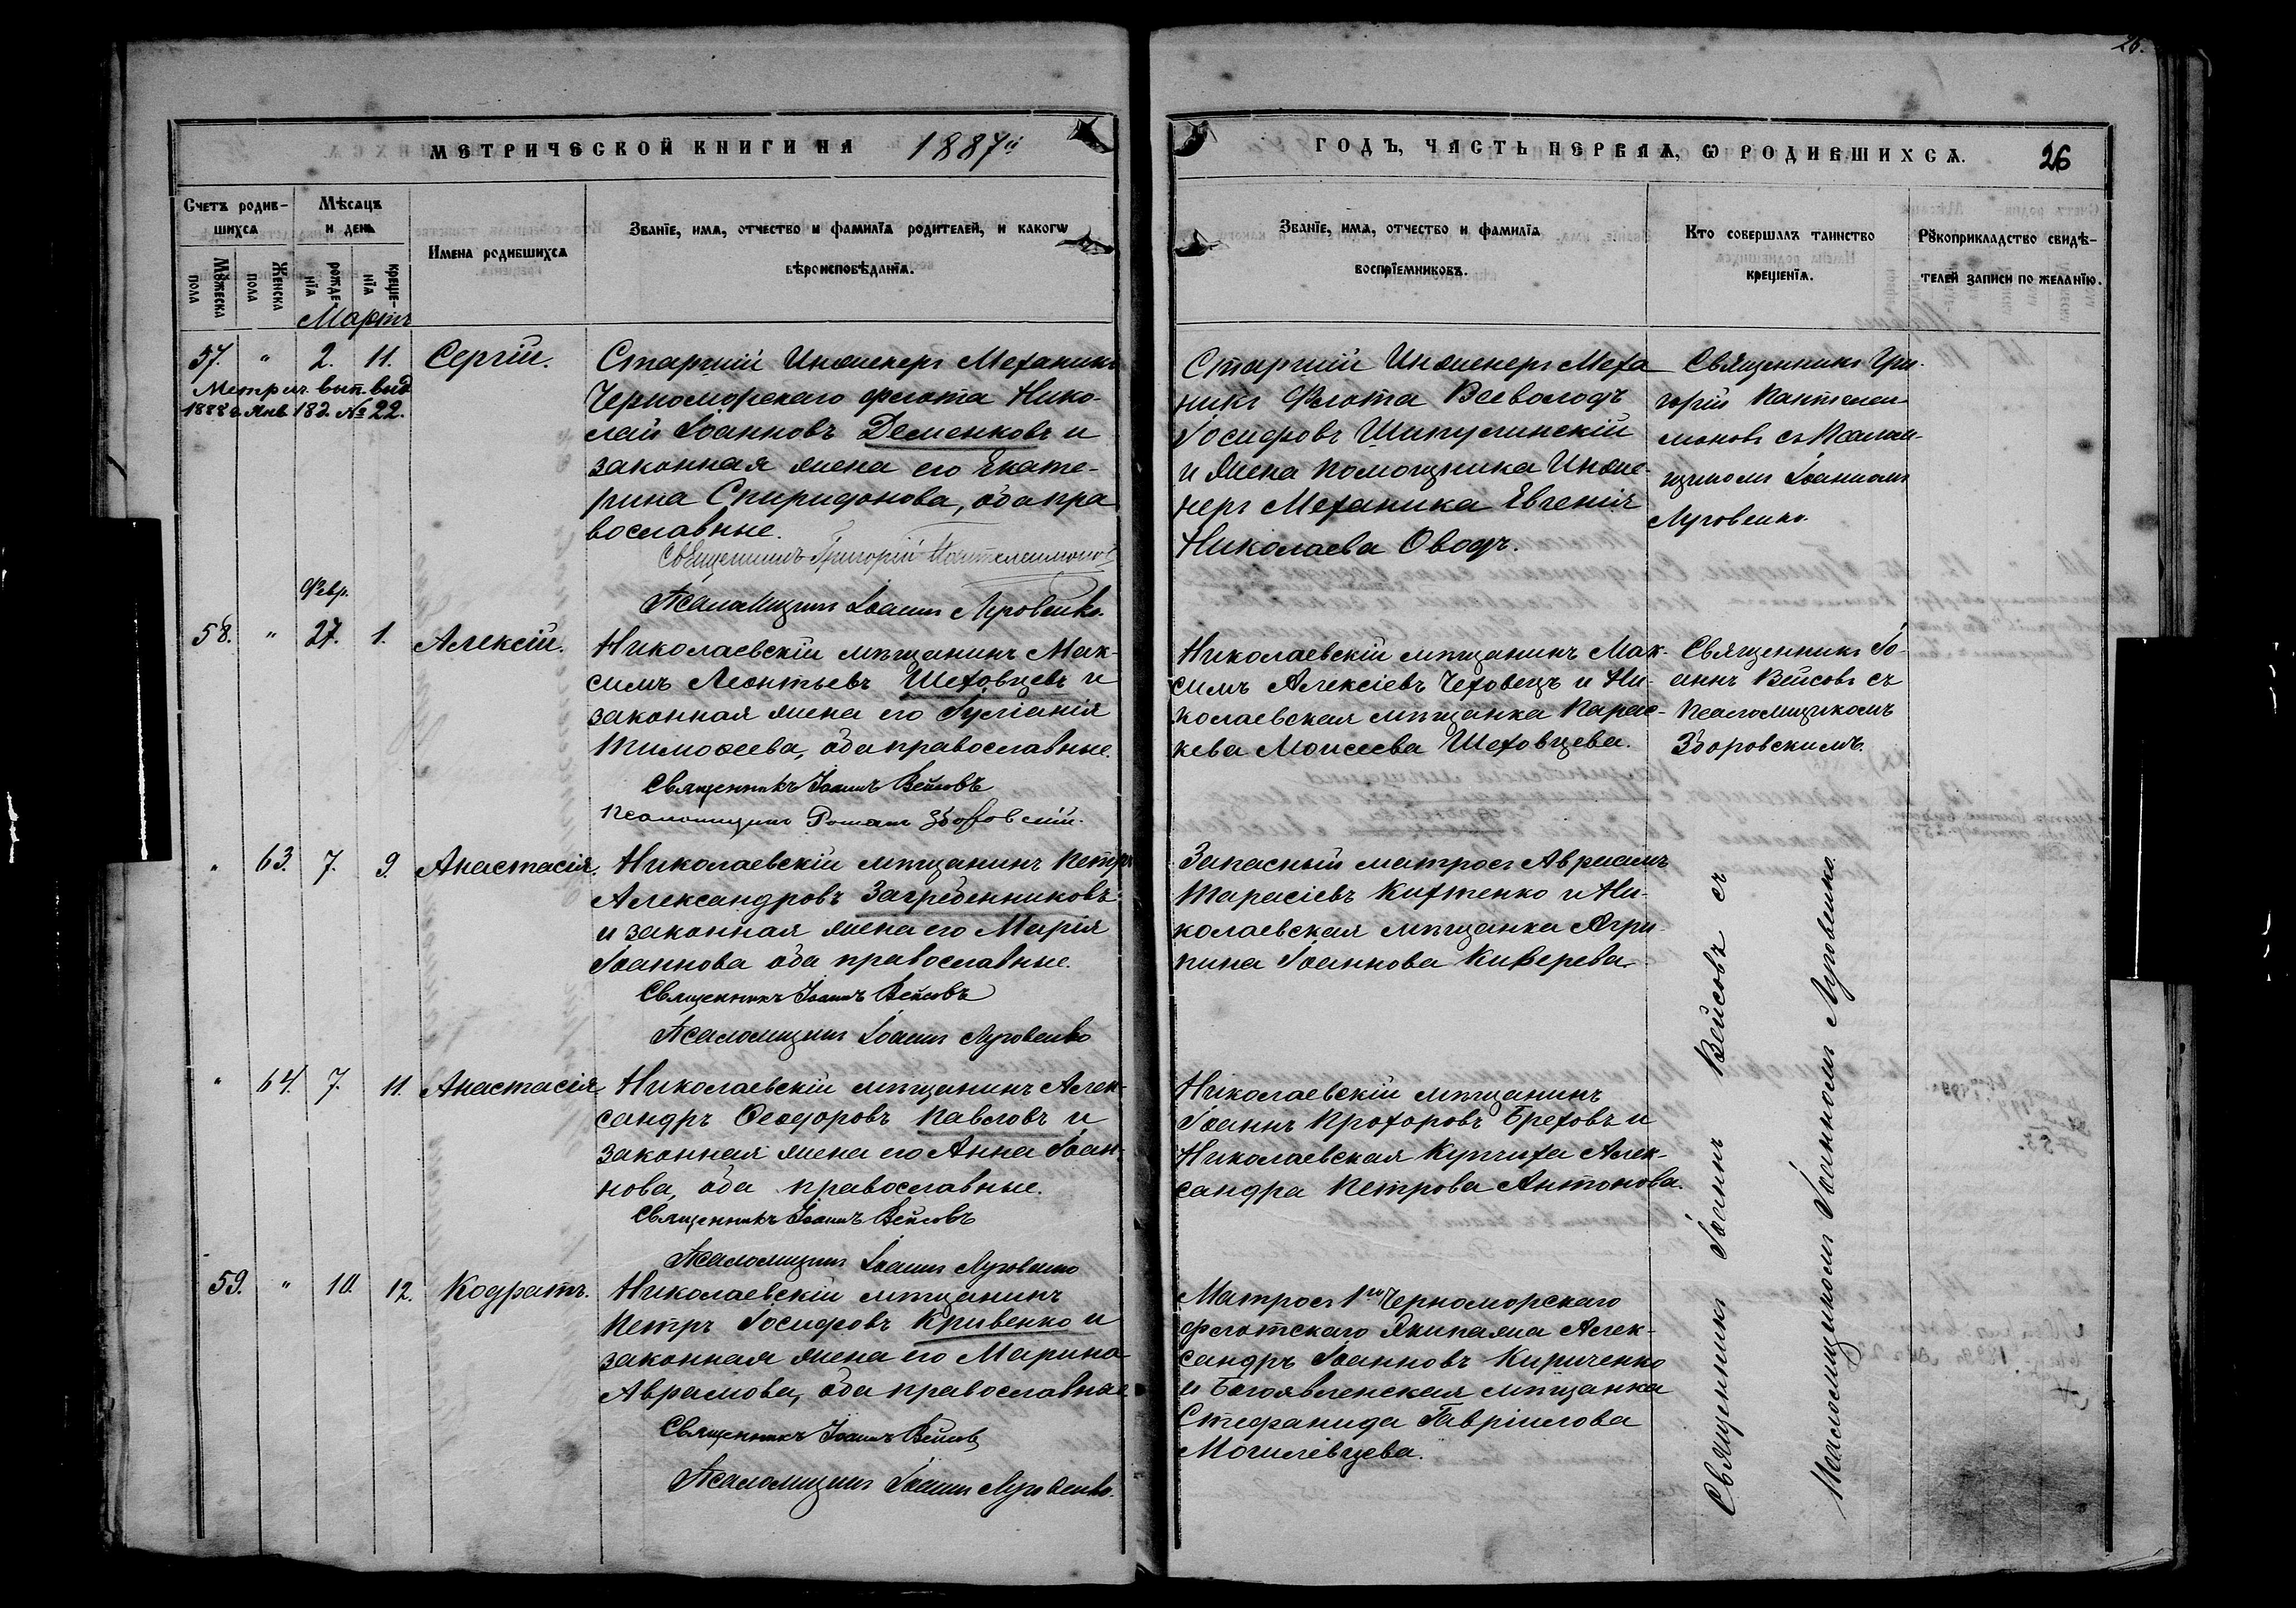 26.
МЕТРИЧЕСКОЙ КНИГИ НА 1887й
ГОДЪ, ЧАСТЬ ПЕРВАЯ, Ѡ РОДИВШИХСѦ. 26
Счетъ родив-
шихсѧ
Мѣсѧцъ
и день
Имена родившихсѧ
Званїе, имѧ, отчество и фамилїѧ родителей, и какогѡ
вѣроисповѣданїѧ.
Званїе, имѧ, отчество и фамилїѧ
воспрїемниковъ.
Кто совершалъ таинство
крещенїѧ.
Рꙋкоприкладство свидѣ-
телей записи по желанїю.
Мꙋжеска
пола
Женска
пола
рожде-
нїѧ
креще-
нїѧ
Мартъ
57. " 2. 11. Сергій.
Метрич. вып. выд.
1888 г. Янв. 18 д. № 22.
Старшій Инженеръ Механикъ
Черноморскаго флота Нико-
лай Іоанновъ Деменковъ и
законная жена его Екате-
рина Спиридонова, оба пра
вославные.
Священникъ Григорій Пантелеимоновъ
Псаломщикъ Іоаннъ Луговенко.
Старшій Инженеръ Меха
никъ Флота Всеволодъ
Іосифовъ Шипулинскій
и жена помощника Инже-
неръ Механика Евгенія
Николаева Оводъ.
Священникъ Гри-
горій Пантелеи-
моновъ съ Псалом-
щикомъ Іоанномъ
Луговенко.
Февр.
58. " 27. 1. Алексій.
Николаевскій мѣщанинъ Мак-
симъ Леонтьевъ Шеховцевъ и
законная жена его Іуліанія
Тимоѳеева, оба православные.
Священникъ Іоаннъ Вейсовъ
Псаломщикъ Романъ Зборовскій.
Николаевскій мѣщанинъ Мак-
симъ Алексіевъ Чеховецъ и Ни-
колаевская мѣщанка Парас-
кева Моисеева Шеховцева.
Священникъ Іо-
аннъ Вейсовъ съ
Псаломщикомъ
Зборовскимъ.
" 63. 7. 9. Анастасія.
Николаевскій мѣщанинъ Петръ
Александровъ Загребенниковъ
и законная жена его Марія
Іоаннова оба православные.
Священникъ Іоаннъ Вейсовъ
Псаломщикъ Іоаннъ Луговенко
Запасный матросъ Авраамъ
Тарасіевъ Кихтенко и Ни-
колаевская мѣщанка Агри-
пина Іоаннова Киверева.
" 64. 7. 11. Анастасія.
Николаевскій мѣщанинъ Алек-
сандръ Ѳеодоровъ Павловъ и
законная жена его Анна Іоан-
нова, оба православные.
Священникъ Іоаннъ Вейсовъ
Псаломщикъ Іоаннъ Луговенко
Николаевскій мѣщанинъ
Іоаннъ Прохоровъ Бреховъ и
Николаевская Купчиха Алек-
сандра Петрова Антонова.
59. " 10. 12. Кодратъ.
Николаевскій мѣщанинъ
Петръ Іосифовъ Кривенко и
законная жена его Марина
Аврамова, оба православные
Священникъ Іоаннъ Вейсовъ
Псаломщикъ Іоаннъ Луговенко.
Матросъ 1го Черноморскаго
флотскаго Экипажа Алек-
сандръ Іоанновъ Кириченко
и Богоявленская мѣщанка
Стефанида Гавріилова
Могилевцева.
Священникъ Іоаннъ Вейсовъ съ
Псаломщикомъ Іоанномъ Луговенко.